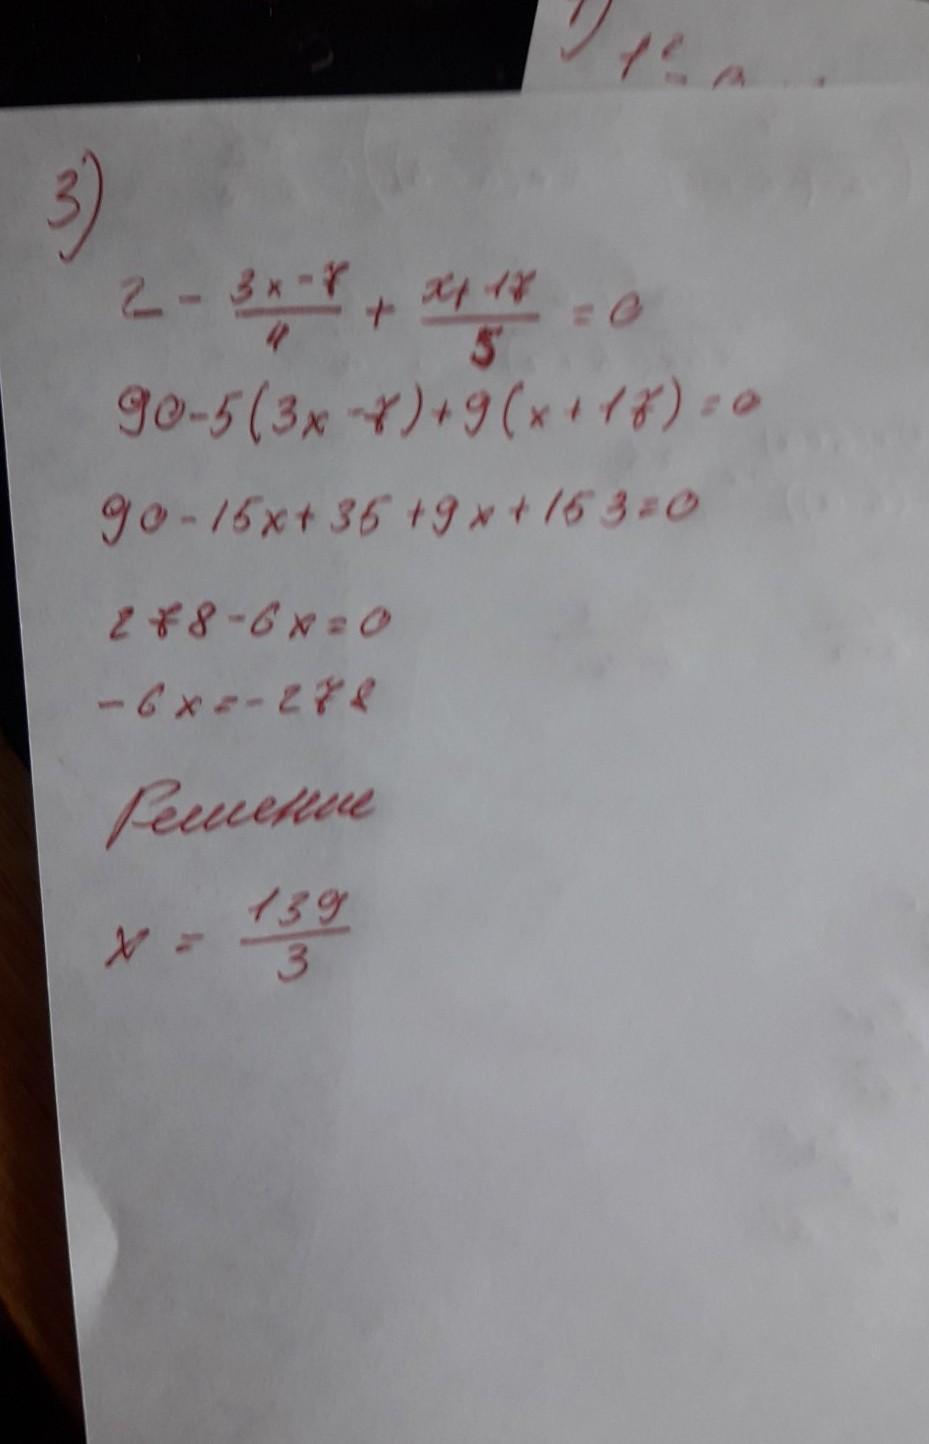 3)
2 - \frac{3x-7}{4} + \frac{x+17}{5} = 0
90-5(3x-7)+9(x+17)=0
90-15x+35+9x+153=0
278-6x=0
-6x=-278
Решение
x = \frac{139}{3}